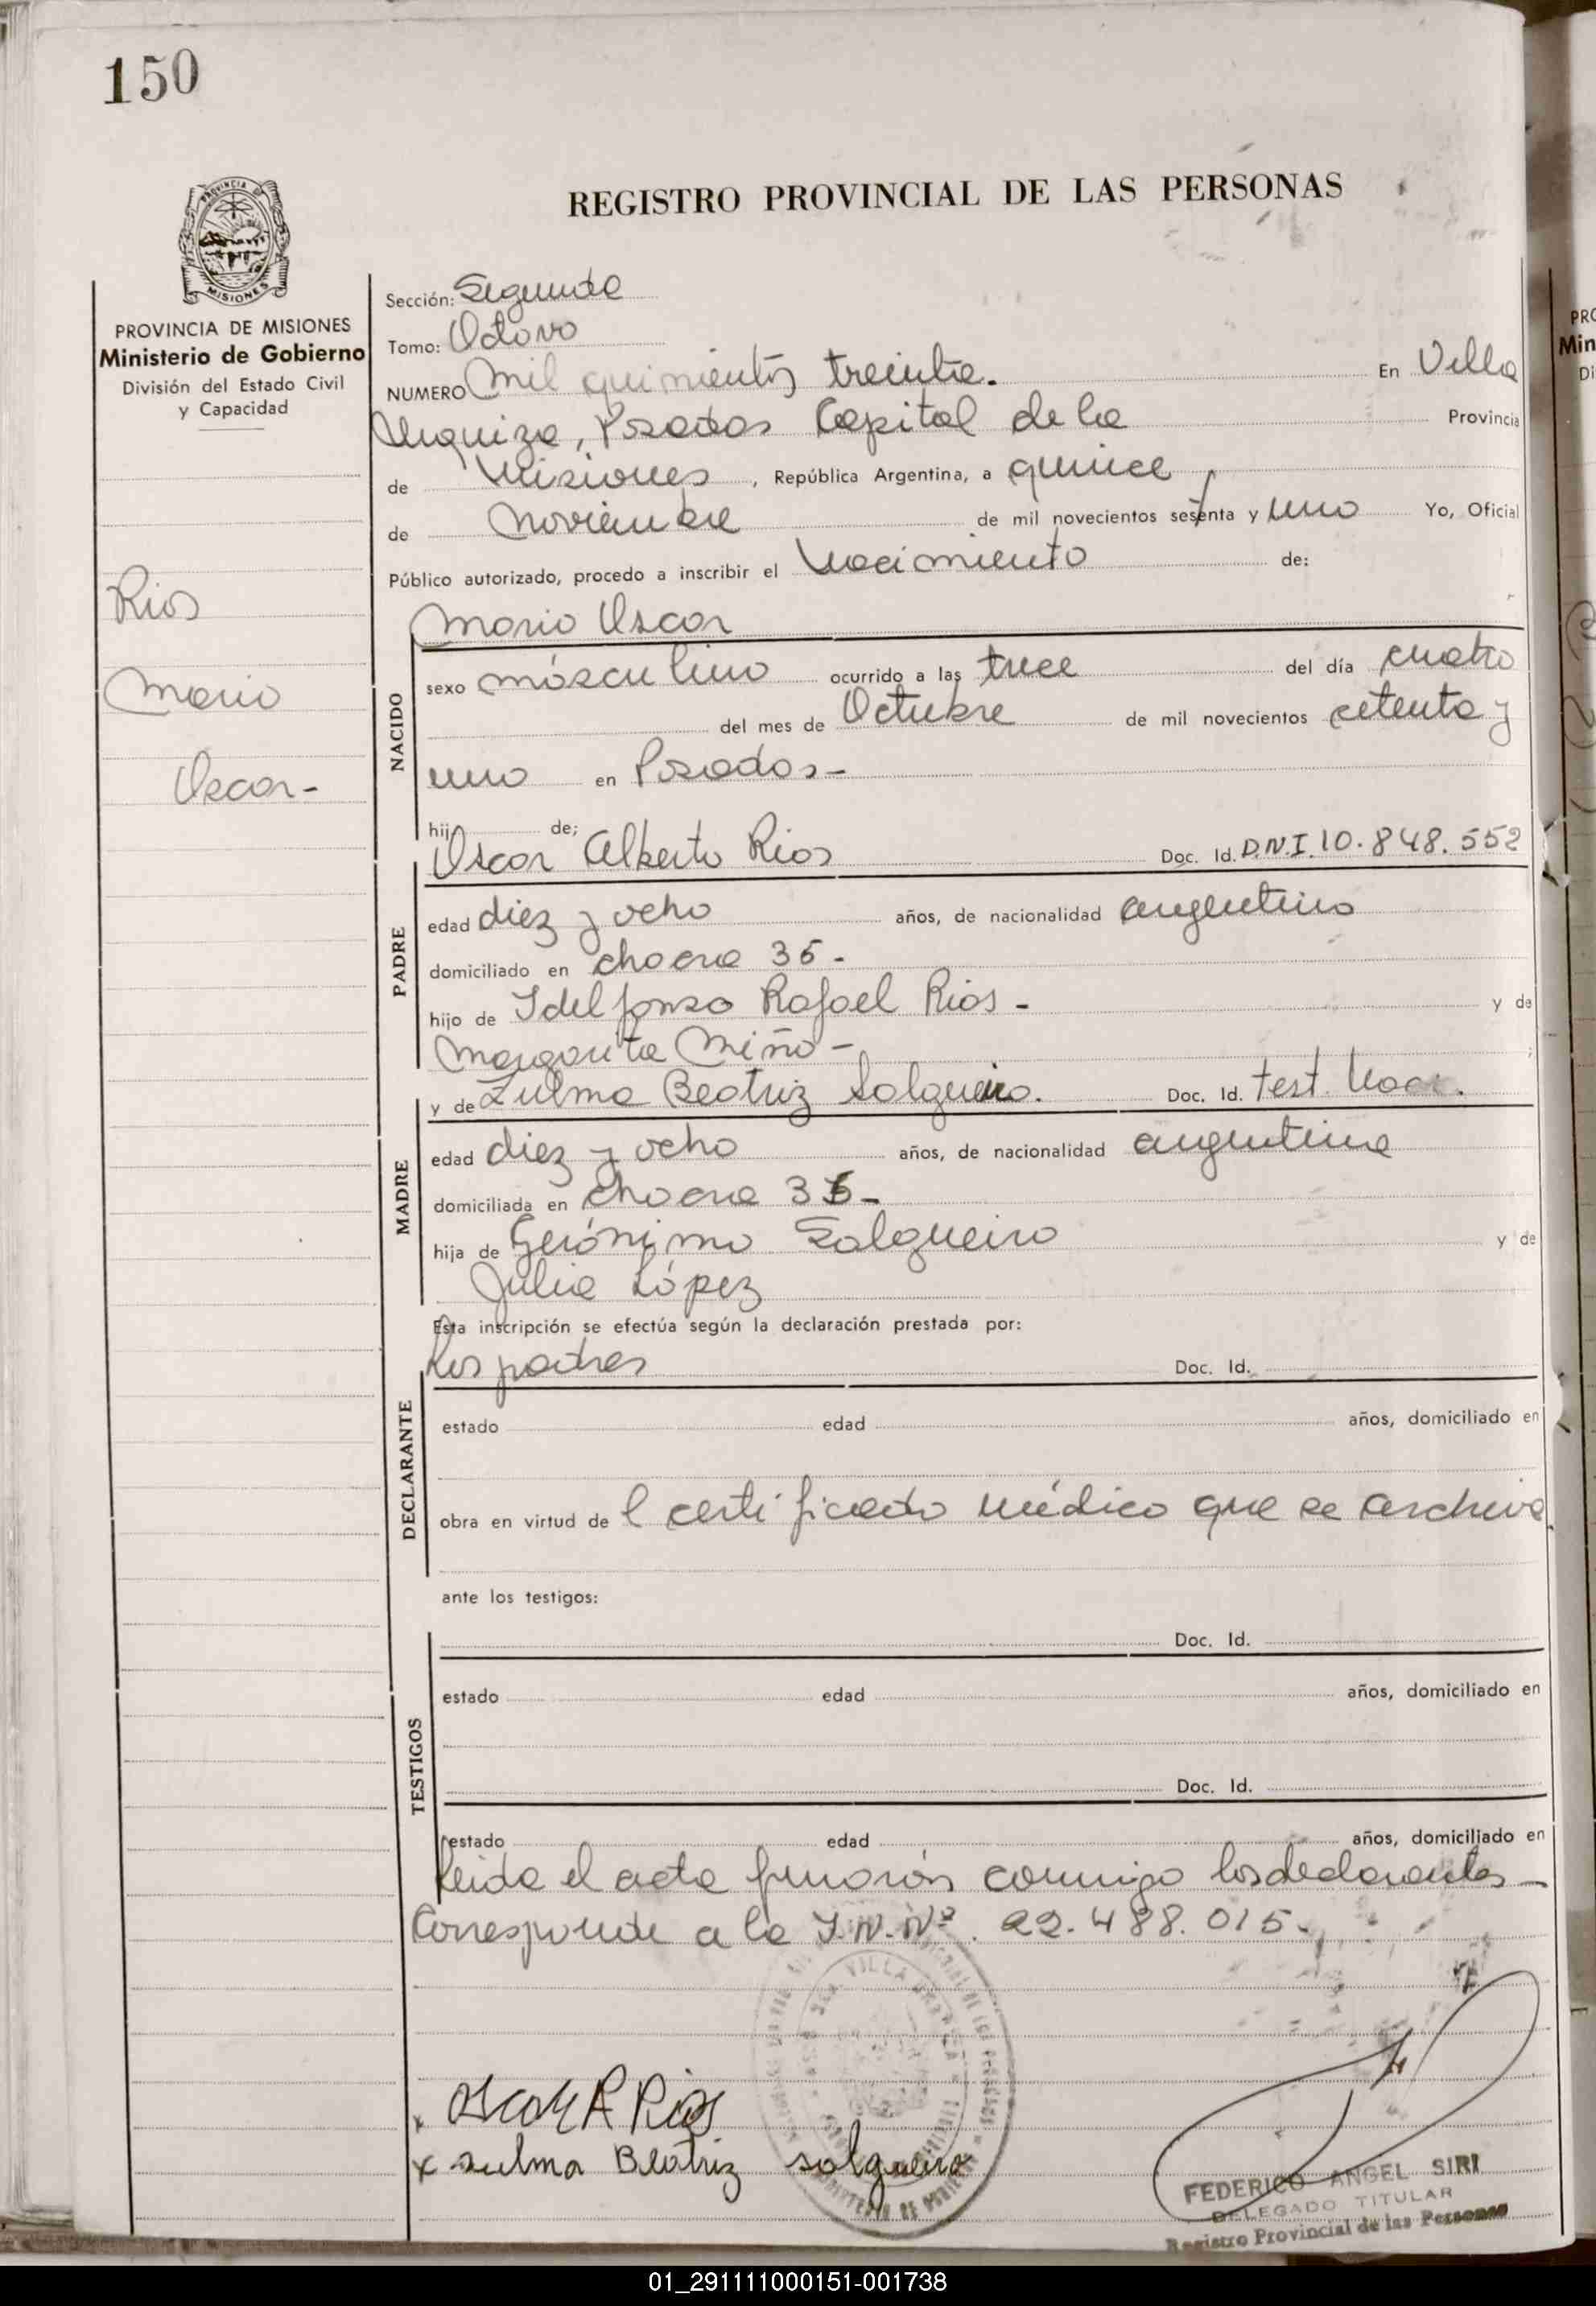 150
REGISTRO PROVINCIAL DE LAS PERSONAS
PROVINCIA DE MISIONES
PROVINCIA DE MISIONES
Ministerio de Gobierno
División del Estado Civil
y Capacidad
Rios
Mario
Oscar-
Sección: Segunda
Tomo: Octavo
NUMERO Mil quinientos treinta. En Villa
Urquiza, Posadas Capital de la Provincia
de Misiones, República Argentina, a quince
de Noviembre de mil novecientos sesenta y uno Yo, Oficial
Público autorizado, procedo a inscribir el Nacimiento de:
Mario Oscar
NACIDO
sexo másculino ocurrido a las trece del día cuatro
del mes de Octubre de mil novecientos setenta y
uno en Posadas-
hij de;
Oscar Alberto Rios Doc. Id. D.N.I. 10.848.552
PADRE
edad diez y ocho años, de nacionalidad argentino
domiciliado en chacra 35-
hijo de Idelfonso Rafael Rios- y de
Margarita Miño-
y de Zulma Beatriz Salgueiro. Doc. Id. test. Naci.
MADRE
edad diez y ocho años, de nacionalidad argentina
domiciliada en chacra 35-
hija de Gerónimo Salgueiro y de
Julia López
Esta inscripción se efectúa según la declaración prestada por:
Los padres Doc. Id.
DECLARANTE
estado edad años, domiciliado en
obra en virtud de l certificado médico que se archiva
ante los testigos:
Doc. Id.
TESTIGOS
estado edad años, domiciliado en
Doc. Id.
estado edad años, domiciliado en
Leida el acta firmarón conmigo los declarantes-
Corresponde a la I.N.Nº. 22.488.015.
x Oscar A Rios
x zulma Beatriz salgueiro
FEDERICO ANGEL SIRI
DELEGADO TITULAR
Registro Provincial de las Personas
01_291111000151-001738